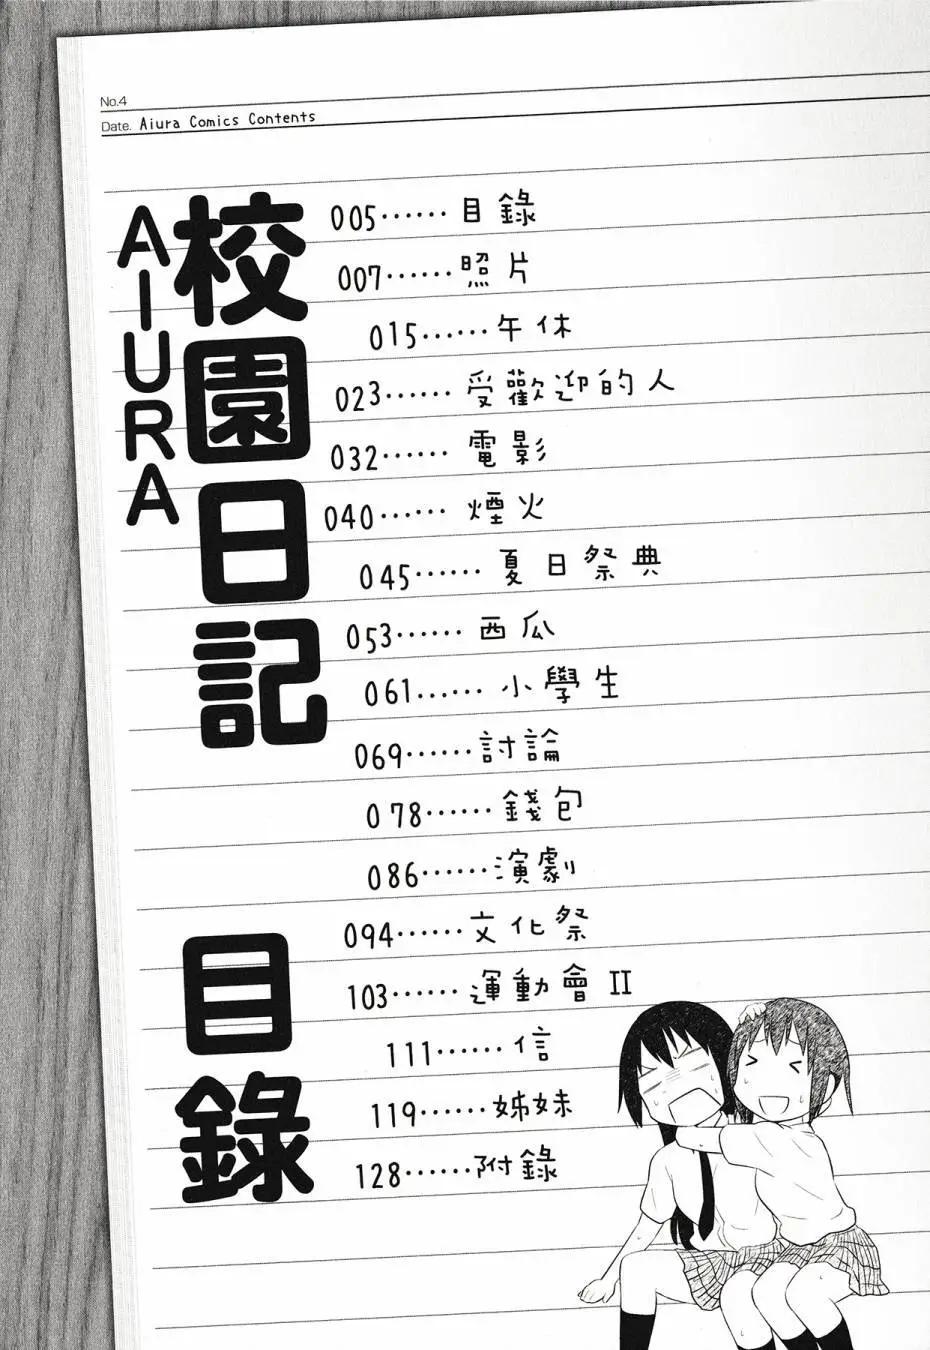 No.4
Date. Aiura Comics Contents
校園日記
AIURA
目錄
005……目錄
007……照片
015……午休
023……受歡迎的人
032……電影
040……煙火
045……夏日祭典
053……西瓜
061……小學生
069……討論
078……錢包
086……演劇
094……文化祭
103……運動會 II
111……信
119……姊妹
128……附錄